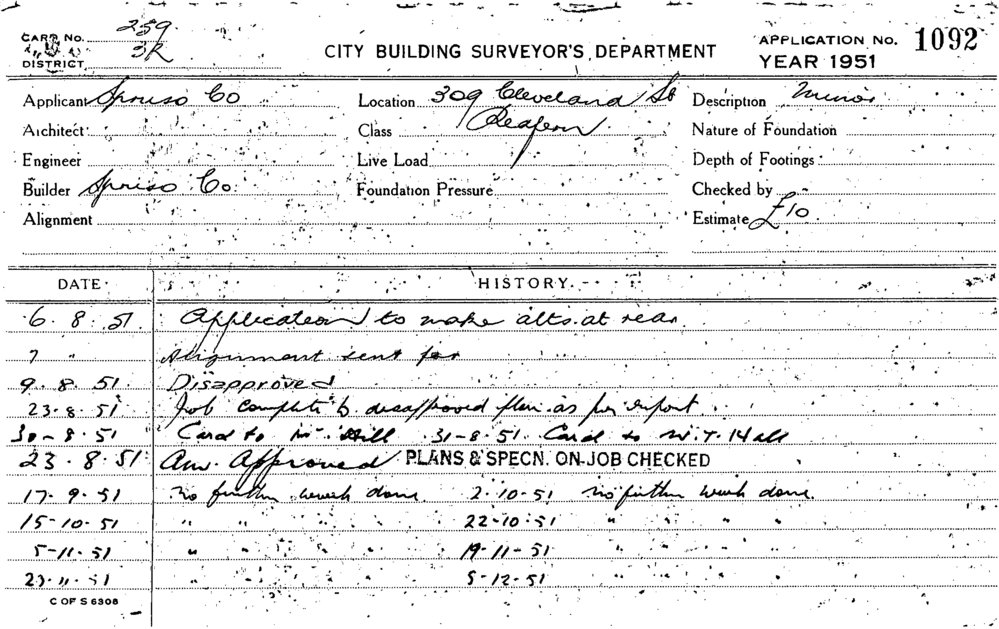 CARD No. 259
DISTRICT 3R
CITY BUILDING SURVEYOR'S DEPARTMENT
APPLICATION No. 1092
YEAR 1951
Applicant Spruso Co
Location 309 Cleveland St
Description Minor
Architect
Class Redfern
Nature of Foundation
Engineer
Live Load
Depth of Footings
Builder Spruso Co.
Foundation Pressure
Checked by
Alignment
Estimate £10
DATE HISTORY.
6. 8. 51. Application to make alts. at rear
7 " Alignment sent for
9. 8. 51. Disapproved
23. 8. 51 Job complete to disapproved plan as per report
30-8. 51 Card to Mr. Hill 31-8. 51. Card to
23. 8. 51. Am. Approved PLANS & SPECN. ON JOB CHECKED
17. 9. 51 No further work done 2. 10. 51 No further work done.
15-10. 51 " " " " 22-10. 51 " " " "
5-11. 51 " " " " 19-11-51 " " " "
11. 51 " " " " 5-12. 51 " " " "
C OF S 6308